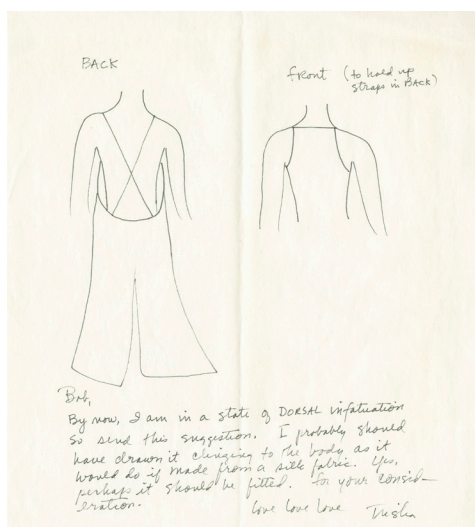 BACK
front (to hold up
straps in BACK)
Bob,
By now, I am in a state of DORSAL infatuation
so send this suggestion. I probably should
have drawn it clinging to the body as it
would do if made from a silk fabric. Yes,
perhaps it should be fitted. For your consid-
eration.
Love Love Love Trisha